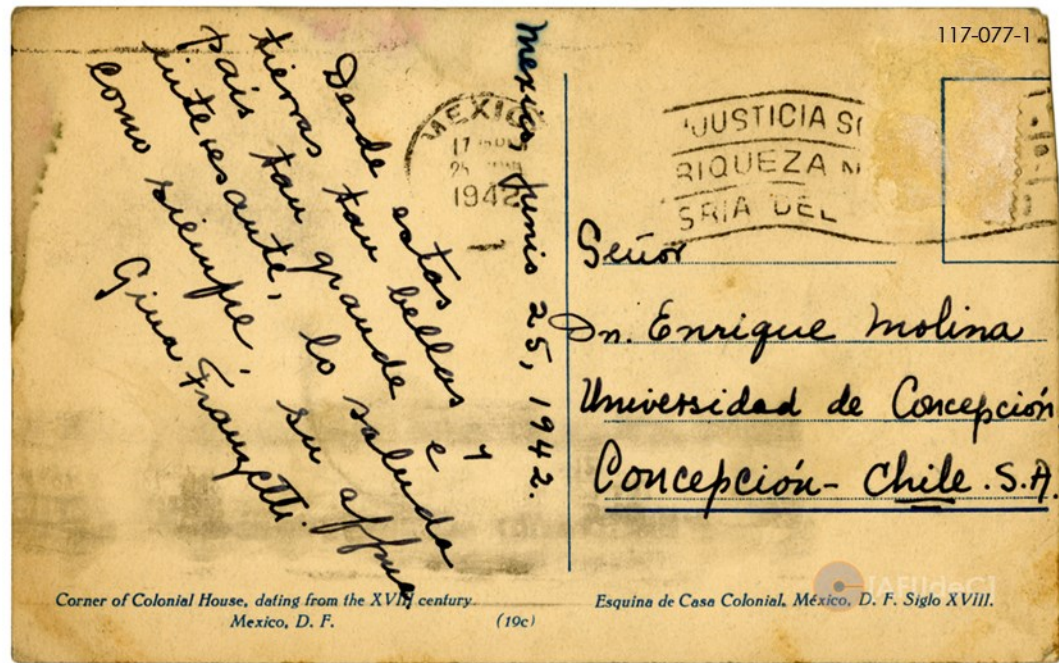 117-077-1
México, Junio 25, 1942.
Desde estas bellas y
tierras tan grande e
país tan lo saluda
interesante, su affma
como siempre,
Gina Franzetti
MEXICO
17
25
1942
JUSTICIA
RIQUEZA
SRIA DEL
Señor
Dn. Enrique Molina
Universidad de Concepción
Concepción - Chile. S.A.
Corner of Colonial House, dating from the XVIII century.
Mexico, D. F.
(19c)
Esquina de Casa Colonial, México, D. F. Siglo XVIII.